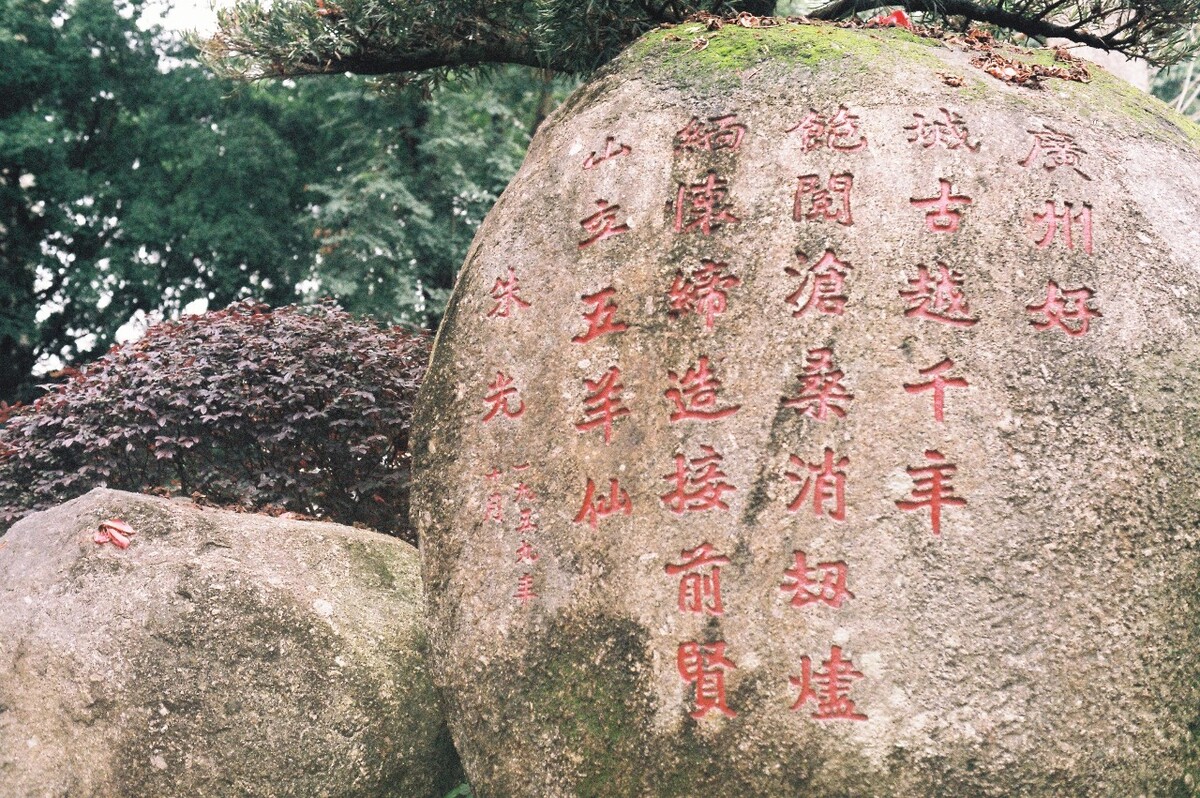 廣州好
城古越千年
飽閱滄桑消刼燼
緬懷締造接前賢
山立五羊仙
朱光
一九五九年
十月